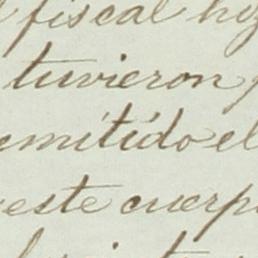 fiscal hiz
tuvieron
emitido el
este cuerp